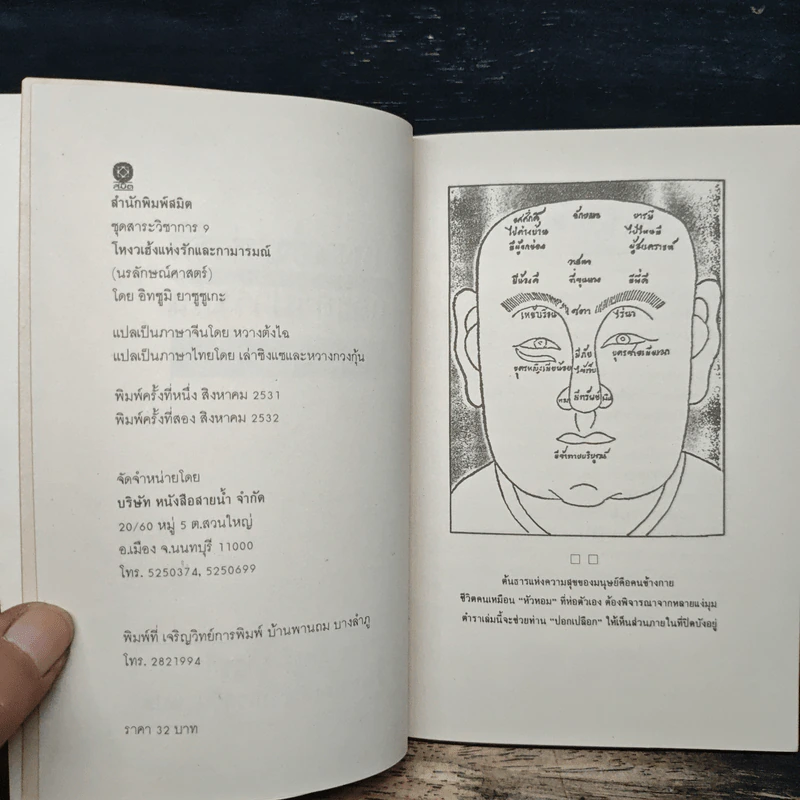 สมิต
สำนักพิมพ์สมิต
ชุดสาระวิชาการ 9
โหงวเฮ้งแห่งรักและกามารมณ์
(นรลักษณ์ศาสตร์)
โดย อิทซูมิ ยาซูซูเกะ
แปลเป็นภาษาจีนโดย หวางตังไฉ
แปลเป็นภาษาไทยโดย เล่าชิงแซและหวางกวงกุ้น
พิมพ์ครั้งที่หนึ่ง สิงหาคม 2531
พิมพ์ครั้งที่สอง สิงหาคม 2532
จัดจำหน่ายโดย
บริษัท หนังสือสายน้ำ จำกัด
20/60 หมู่ 5 ต.สวนใหญ่
อ.เมือง จ.นนทบุรี 11000
โทร. 5250374, 5250699
พิมพ์ที่ เจริญวิทย์การพิมพ์ บ้านพานถม บางลำภู
โทร. 2821994
ราคา 32 บาท
วาสนา
ที่ขุนนาง
มีทรัพย์
ต้นธารแห่งความสุขของมนุษย์คือคนข้างกาย
ชีวิตคนเหมือน "หัวหอม" ที่ห่อตัวเอง ต้องพิจารณาจากหลายแง่มุม
ตำราเล่มนี้จะช่วยท่าน "ปอกเปลือก" ให้เห็นส่วนภายในที่ปิดบังอยู่